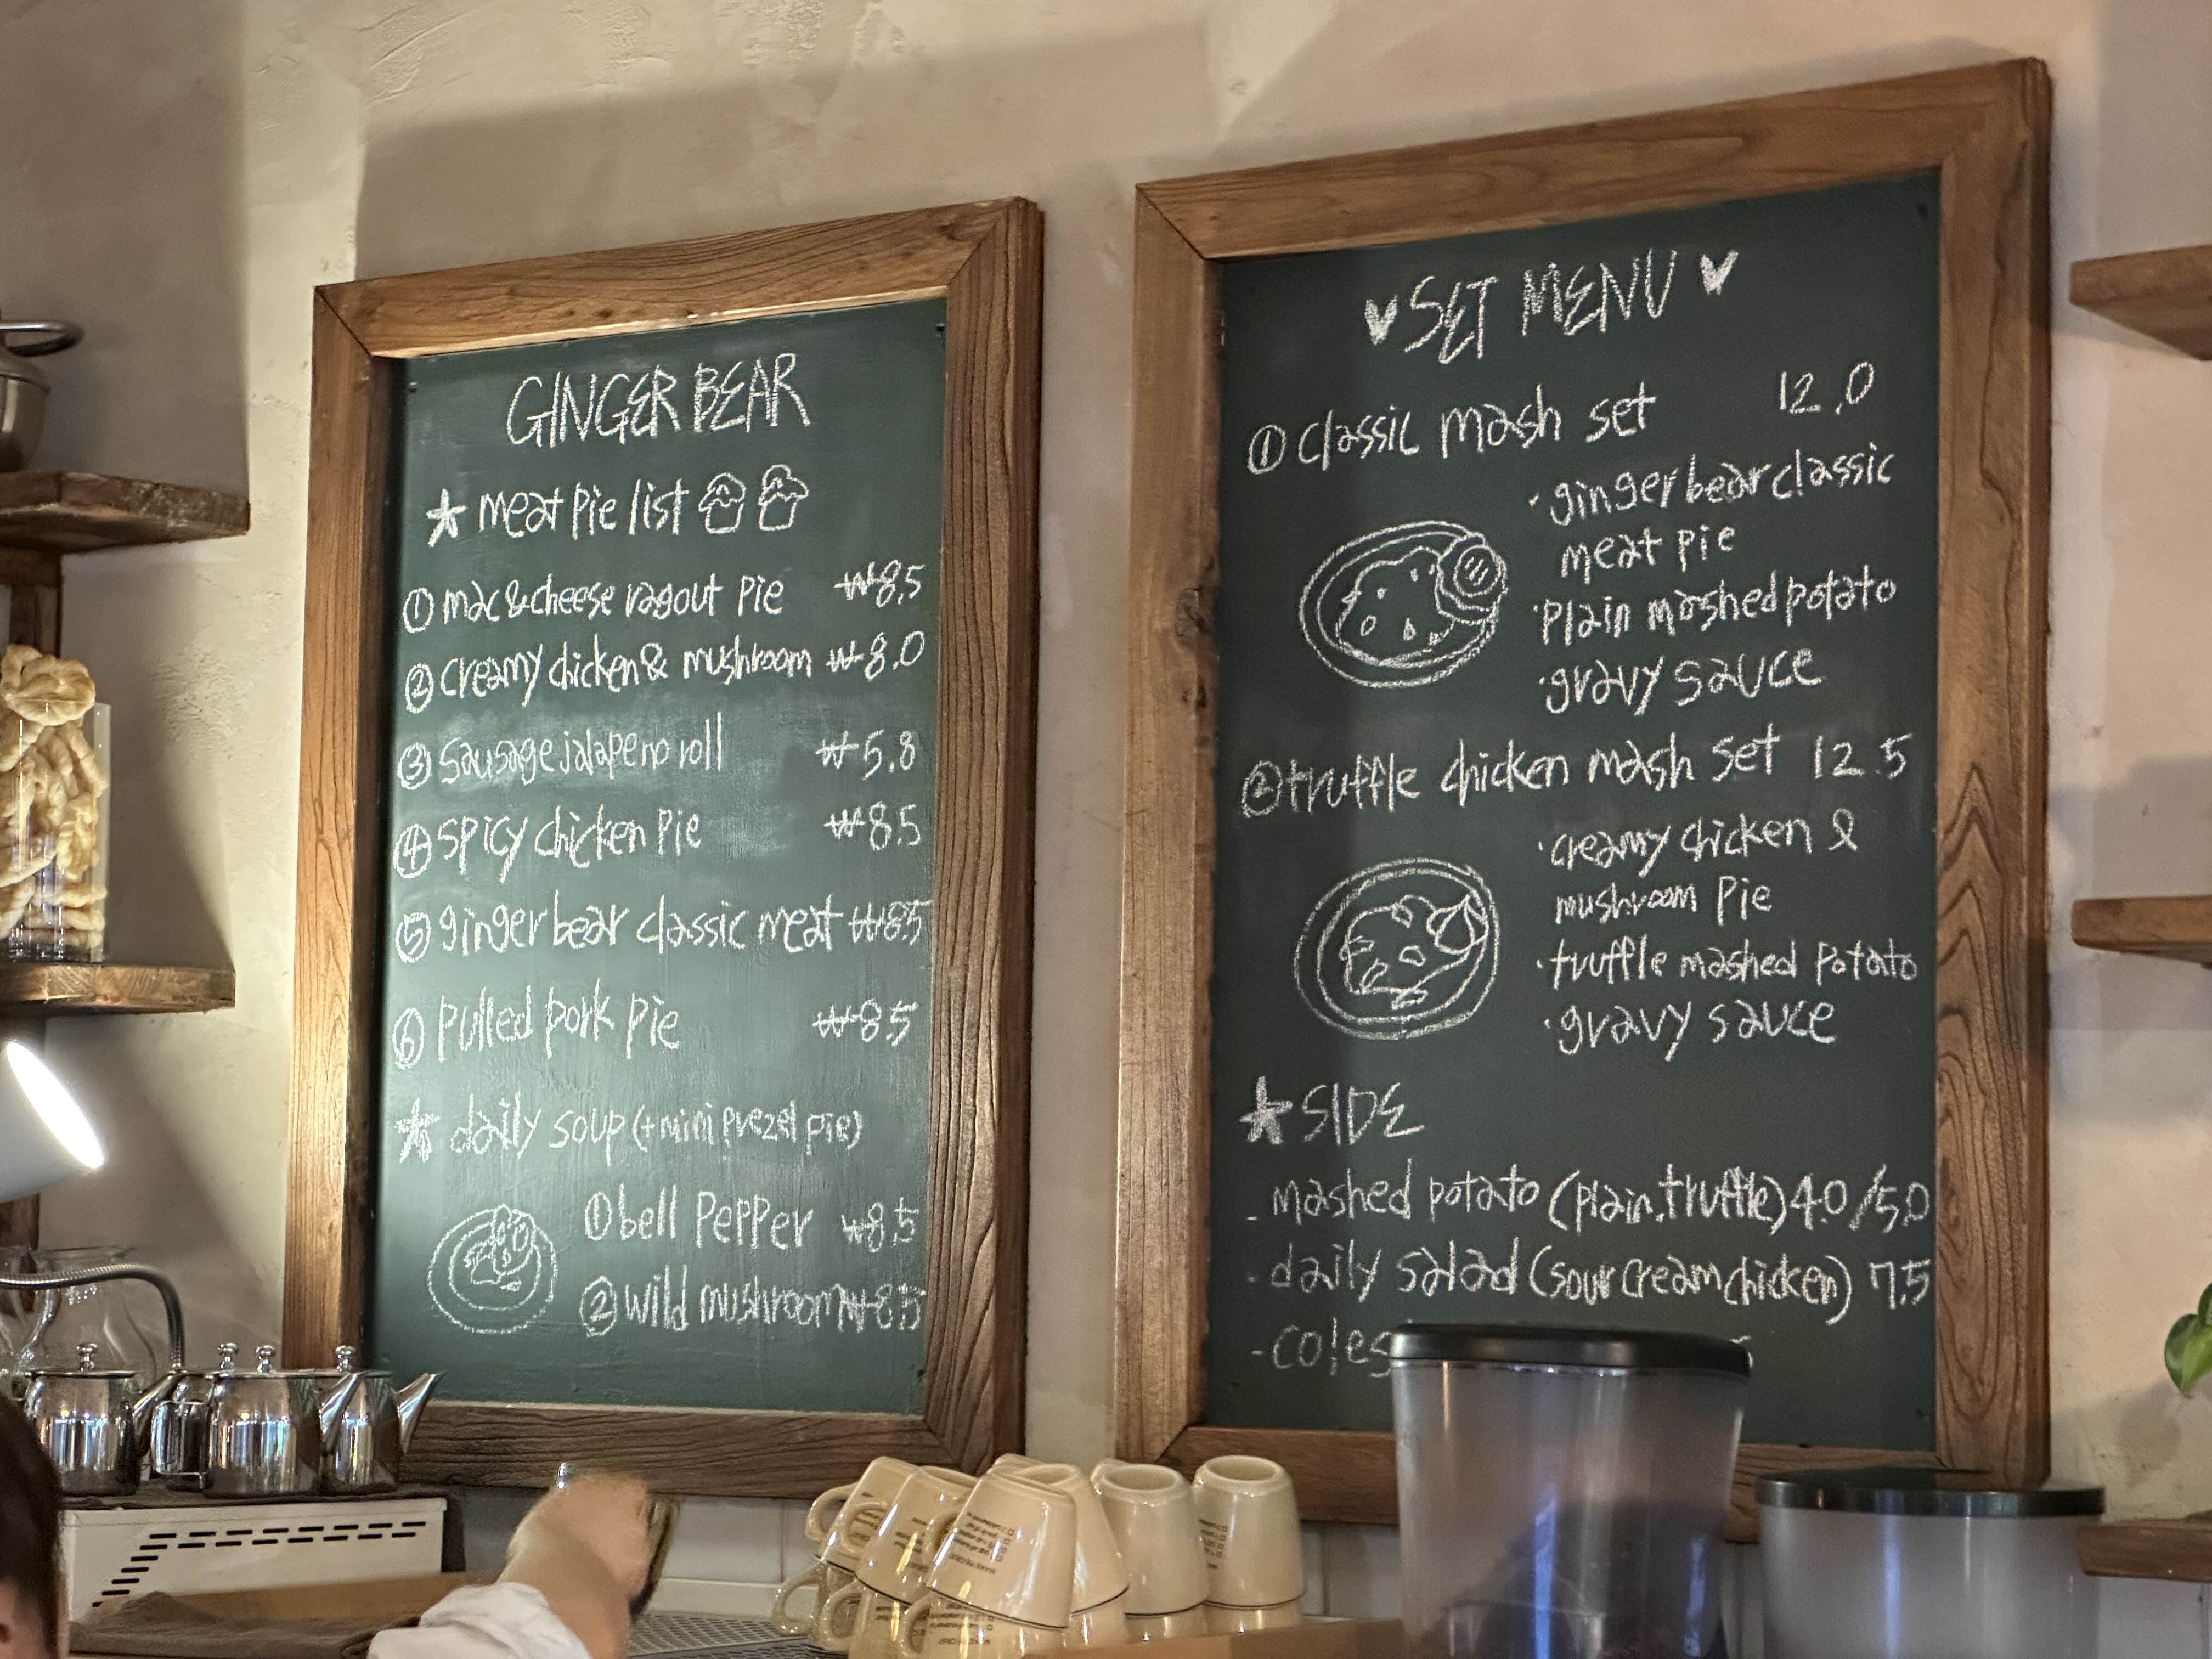 GINGER BEAR
★ meat pie list
① mac & cheese ragout pie ₩8.5
② creamy chicken & mushroom ₩8.0
③ sausage jalapeno roll ₩5.8
④ spicy chicken pie ₩8.5
⑤ ginger bear classic meat ₩8.5
⑥ pulled pork pie ₩8.5
★ daily soup (+mini prezel pie)
① bell pepper ₩8.5
② wild mushroom ₩8.5
♥ SET MENU ♥
① classic mash set 12.0
· ginger bear classic
meat pie
· plain mashed potato
· gravy sauce
② truffle chicken mash set 12.5
· creamy chicken &
mushroom pie
· truffle mashed potato
· gravy sauce
★ SIDE
- mashed potato (plain, truffle) 4.0/5.0
- daily salad (sour cream chicken) 7.5